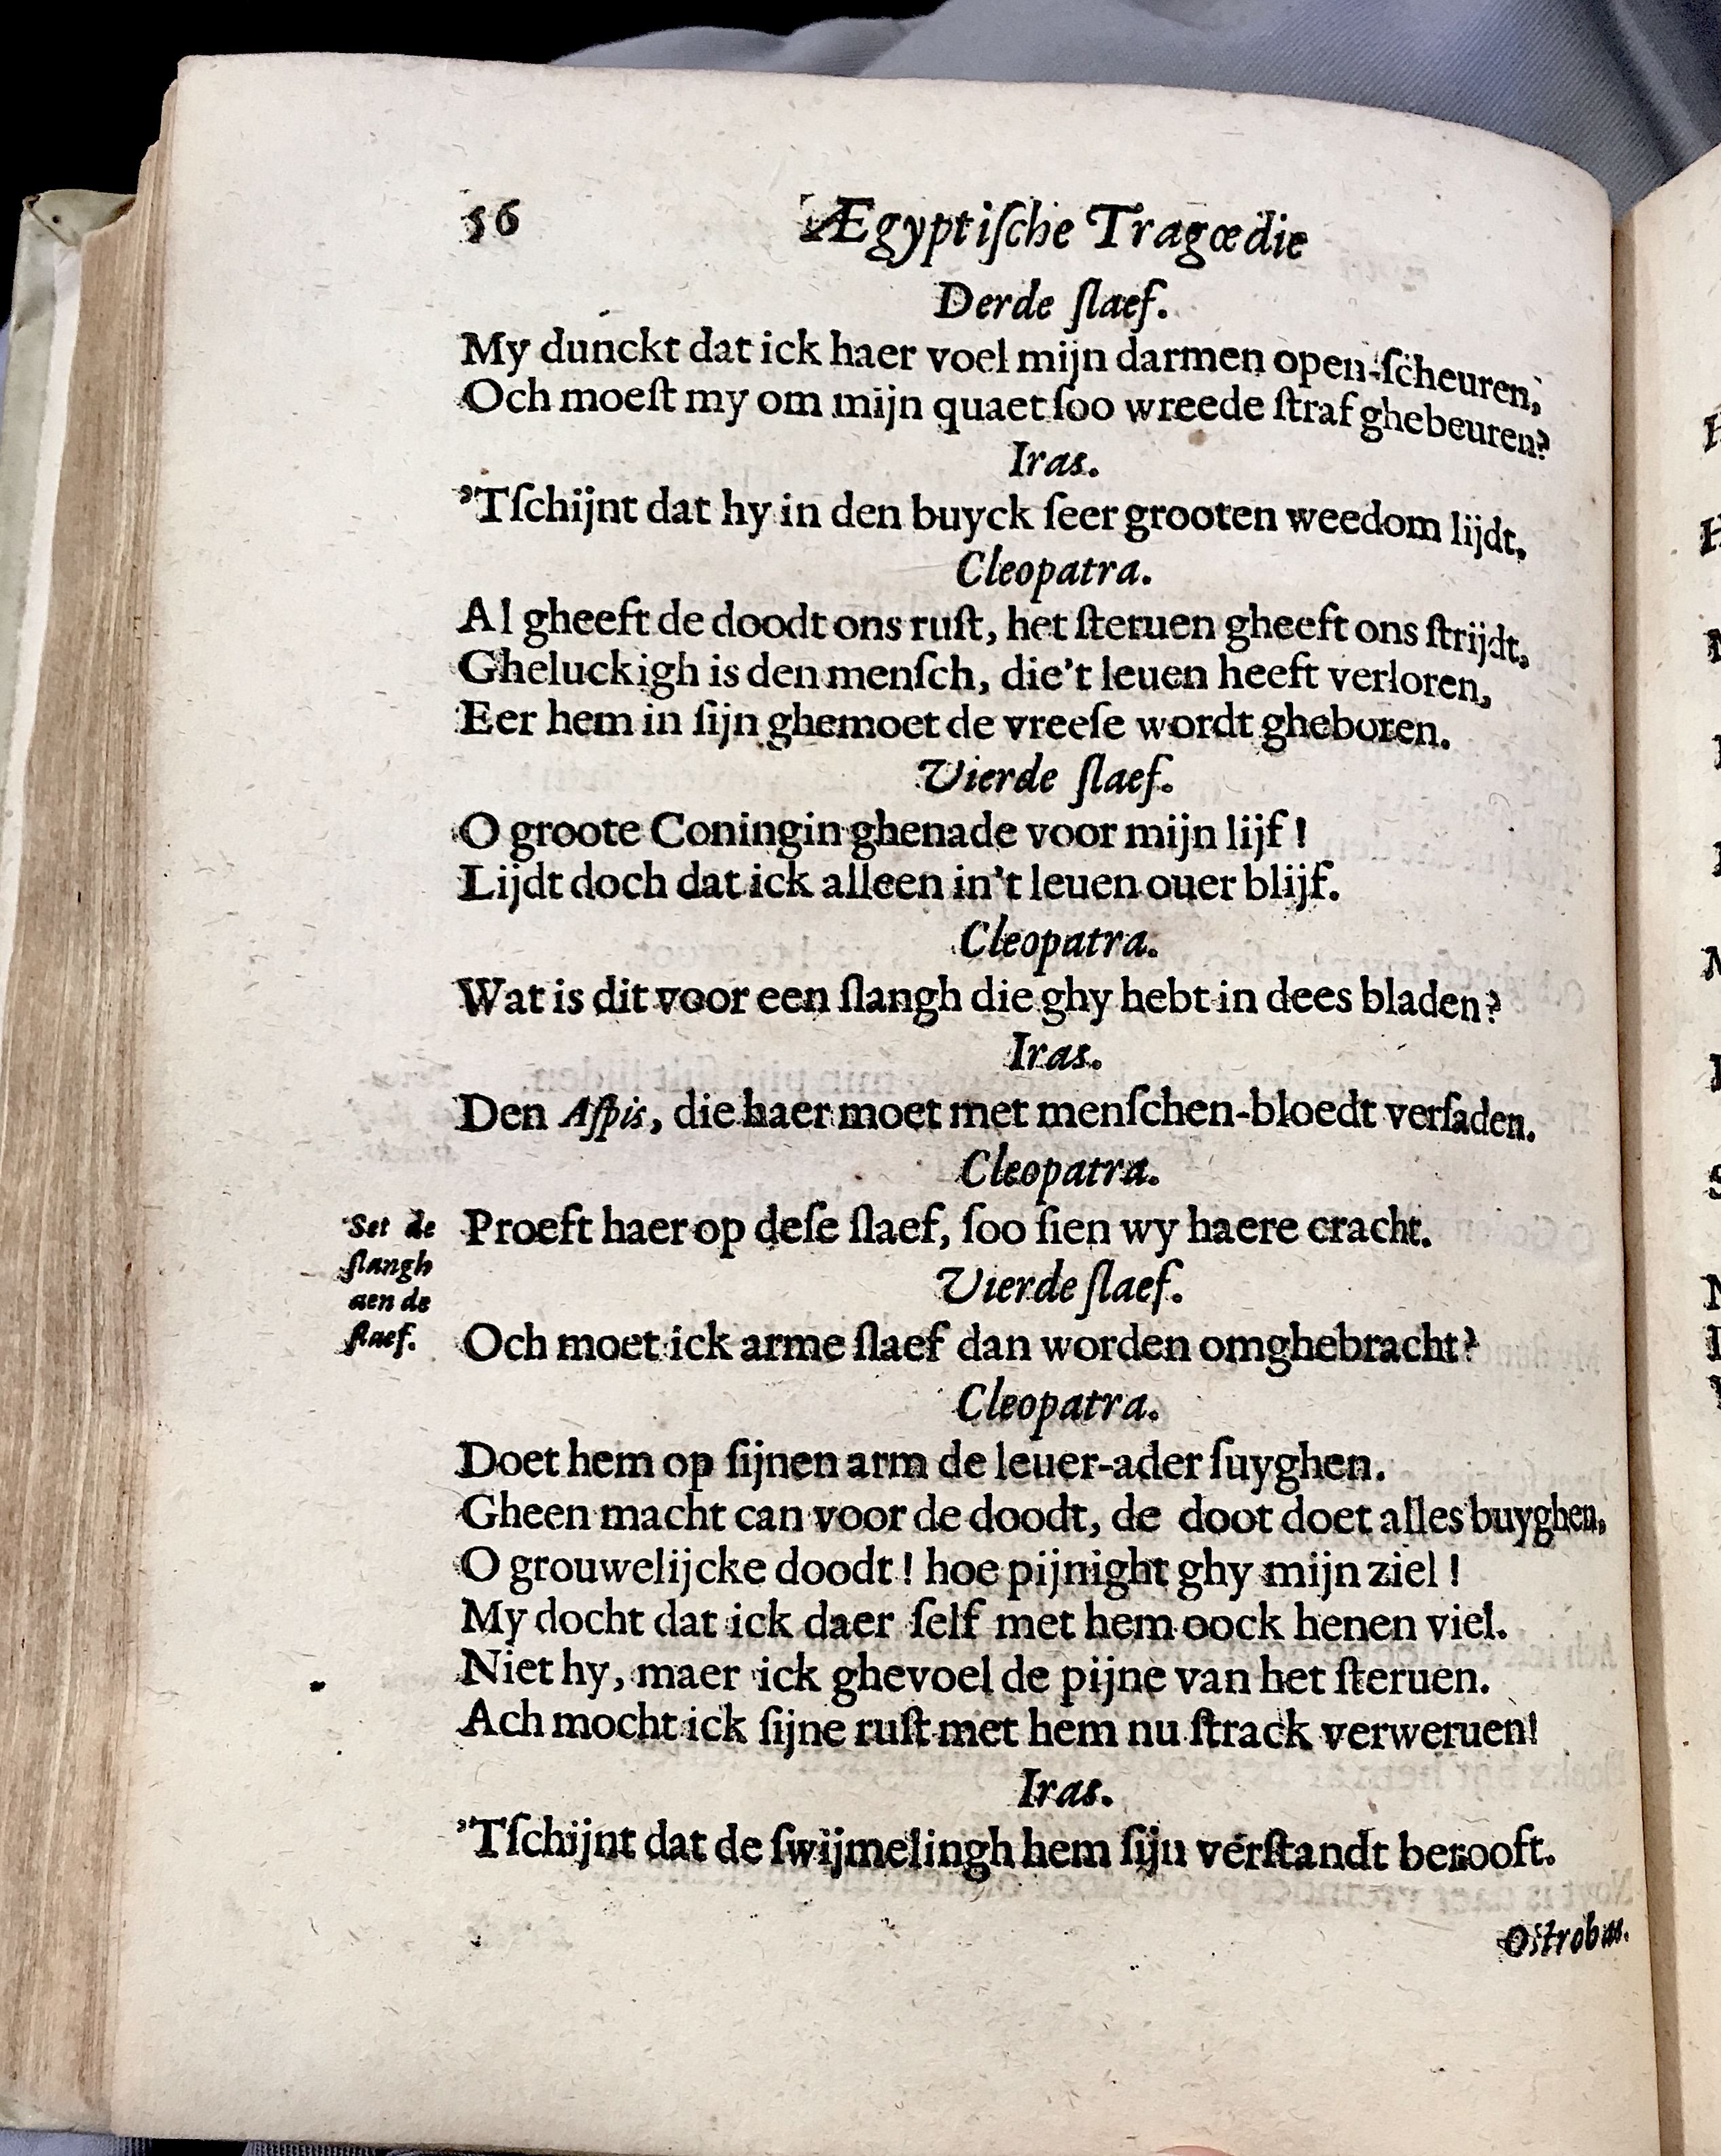 56 Ægyptiſche Tragœdie
Derde ſlaef.
My dunckt dat ick haer voel mijn darmen open-ſcheuren,
Och moeſt my om mijn quaet ſoo wreede ſtraf ghebeuren?
Iras.
'Tſchijnt dat hy in den buyck ſeer grooten weedom lijdt,
Cleopatra.
Al gheeft de doodt ons ruſt, het ſteruen gheeft ons ſtrijdt,
Gheluckigh is den menſch, die't leuen heeft verloren,
Eer hem in ſijn ghemoet de vreeſe wordt gheboren.
Vierde ſlaef.
O groote Coningin ghenade voor mijn lijf!
Lijdt doch dat ick alleen in't leuen ouer blijf.
Cleopatra.
Wat is dit voor een ſlangh die ghy hebt in dees bladen?
Iras.
Den Aſpis, die haer moet met menſchen-bloedt verſaden.
Cleopatra.
Proeft haer op deſe ſlaef, ſoo ſien wy haere cracht.
Set de
ſlangh
aen de
ſlaef.
Vierde ſlaef.
Och moet ick arme ſlaef dan worden omghebracht?
Cleopatra.
Doet hem op ſijnen arm de leuer-ader ſuyghen.
Gheen macht can voor de doodt, de doot doet alles buyghen,
O grouwelijcke doodt! hoe pijnight ghy mijn ziel!
My docht dat ick daer ſelf met hem oock henen viel.
Niet hy, maer ick ghevoel de pijne van het ſteruen.
Ach mocht ick ſijne ruſt met hem nu ſtrack verweruen!
Iras.
'Tſchijnt dat de ſwijmelingh hem ſijn verſtandt berooft.
Oſtrobas.